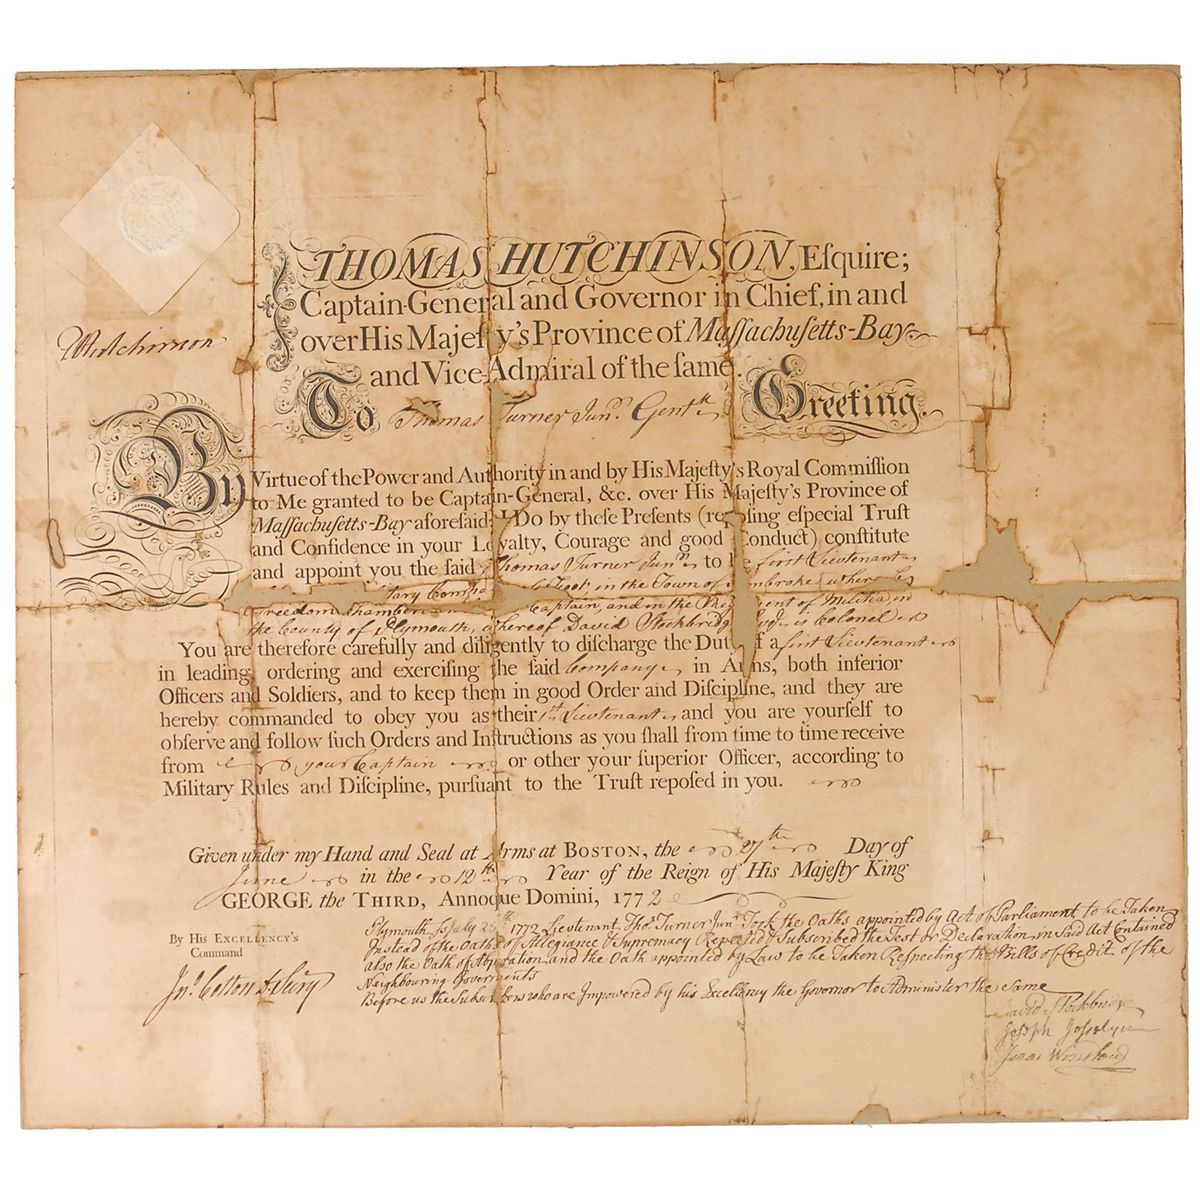 THOMAS HUTCHINSON, Eſquire;
Captain-General and Governor in Chief, in and
over His Majeſty's Province of Maſſachuſetts-Bay
and Vice-Admiral of the ſame.
Hutchinson
To Thomas Turner Junr. Gentn. Greeting.
By Virtue of the Power and Authority in and by His Majeſty's Royal Commiſſion
to Me granted to be Captain-General, &c. over His Majeſty's Province of
Maſſachusetts-Bay aforeſaid; I Do by theſe Preſents (repoſing eſpecial Truſt
and Confidence in your Loyalty, Courage and good Conduct) conſtitute
and appoint you the ſaid Thomas Turner Junr. to be first Lieutenant
tary Comp Foot, in the Town of Pembroke, whereof
Freedom Chamberlin Captain, and in the Regiment of Militia, in
the County of Plymouth, whereof David Stockbridge Esqr. is Colonel
You are therefore carefully and diligently to diſcharge the Duty of a first Lieutenant
in leading, ordering and exerciſing the ſaid Company in Arms, both inferior
Officers and Soldiers, and to keep them in good Order and Diſcipline, and they are
hereby commanded to obey you as their 1st. Lieutenant and you are yourſelf to
obſerve and follow ſuch Orders and Inſtructions as you ſhall from time to time receive
from your Captain or other your ſuperior Officer, according to
Military Rules and Diſcipline, purſuant to the Truſt repoſed in you.
Given under my Hand and Seal at Arms at BOSTON, the 27th Day of
June in the 12th Year of the Reign of His Majeſty King
GEORGE the THIRD, Annoque Domini, 1772
By His EXCELLENCY's
Command
Jno. Cotton D Secry
Plymouth ſs July 25th 1772 Lieutenant Thos. Turner Junr. Took the Oaths appointed by Act of Parliament to be Taken
Instead of the Oaths of Allegiance & Supremacy Repeated & Subscribed the Test or Declaration in said Act Contained
also the Oath of Abjuration and the Oath appointed by Law to be Taken Respecting the Bills of Credit of the
Neighbouring Goverments
Before us the Subscribers who are Impowered by his Excellency the Governor to Administer the same
David Stockbridge
Joseph Josselyn
Isaac Winslow